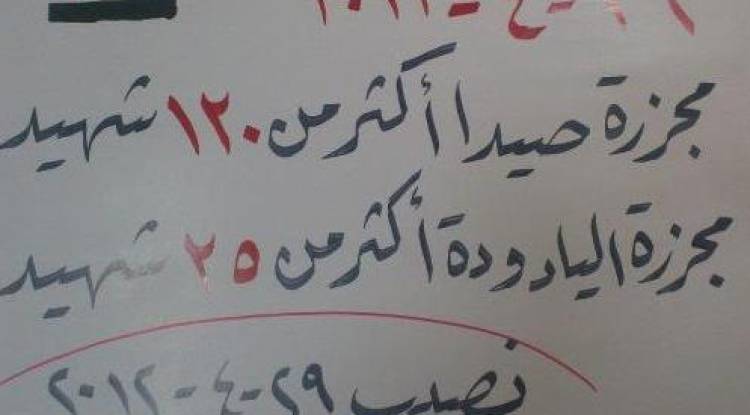 مجزرة صيدا أكثر من ١٢٠ شهيد
مجزرة اليادودة أكثر من ٢٥ شهيد
نصيب ٢٩-٤-٢٠١٢